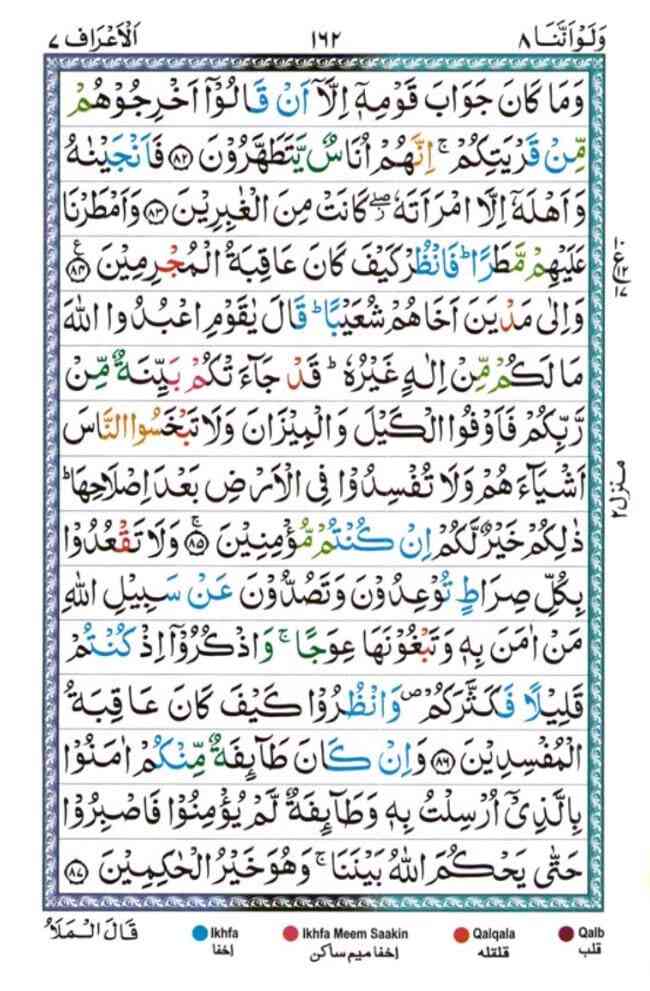 وَلَوْاَنَّنَا ٨ ١٦٢ اَلْاَعْرَاف ٧
وَمَا كَانَ جَوَابَ قَوْمِهٖۤ اِلَّاۤ اَنْ قَالُوْۤا اَخْرِجُوْهُمْ
مِّنْ قَرْیَتِكُمْ ۚ اِنَّهُمْ اُنَاسٌ یَّتَطَهَّرُوْنَ ﴿۸۲﴾ فَاَنْجَیْنٰهُ
وَاَهْلَهٗۤ اِلَّا امْرَاَتَهٗ ۖ ؗ كَانَتْ مِنَ الْغٰبِرِیْنَ ﴿۸۳﴾ وَاَمْطَرْنَا
عَلَیْهِمْ مَّطَرًا ؕ فَانْظُرْ كَیْفَ كَانَ عَاقِبَةُ الْمُجْرِمِیْنَ ﴿۸۴﴾ ع
وَاِلٰی مَدْیَنَ اَخَاهُمْ شُعَیْبًا ؕ قَالَ یٰقَوْمِ اعْبُدُوا اللّٰهَ
مَا لَكُمْ مِّنْ اِلٰهٍ غَیْرُهٗ ؕ قَدْ جَآءَتْكُمْ بَیِّنَةٌ مِّنْ
رَّبِّكُمْ فَاَوْفُوا الْكَیْلَ وَالْمِیْزَانَ وَلَا تَبْخَسُوا النَّاسَ
اَشْیَآءَهُمْ وَلَا تُفْسِدُوْا فِی الْاَرْضِ بَعْدَ اِصْلَاحِهَا ؕ
ذٰلِكُمْ خَیْرٌ لَّكُمْ اِنْ كُنْتُمْ مُّؤْمِنِیْنَ ﴿ۚ۸۵﴾ وَلَا تَقْعُدُوْا
بِكُلِّ صِرَاطٍ تُوْعِدُوْنَ وَتَصُدُّوْنَ عَنْ سَبِیْلِ اللّٰهِ
مَنْ اٰمَنَ بِهٖ وَتَبْغُوْنَهَا عِوَجًا ۚ وَاذْكُرُوْۤا اِذْ كُنْتُمْ
قَلِیْلًا فَكَثَّرَكُمْ ۪ وَانْظُرُوْا كَیْفَ كَانَ عَاقِبَةُ
الْمُفْسِدِیْنَ ﴿۸۶﴾ وَاِنْ كَانَ طَآىِٕفَةٌ مِّنْكُمْ اٰمَنُوْا
بِالَّذِیْۤ اُرْسِلْتُ بِهٖ وَطَآىِٕفَةٌ لَّمْ یُؤْمِنُوْا فَاصْبِرُوْا
حَتّٰی یَحْكُمَ اللّٰهُ بَیْنَنَا ۚ وَهُوَ خَیْرُ الْحٰكِمِیْنَ ﴿۸۷﴾
منزل ٢
قَالَ الْمَلَاُ
Ikhfa Ikhfa Meem Saakin Qalqala Qalb
اخفا اخفا میم ساکن قلقله قلب